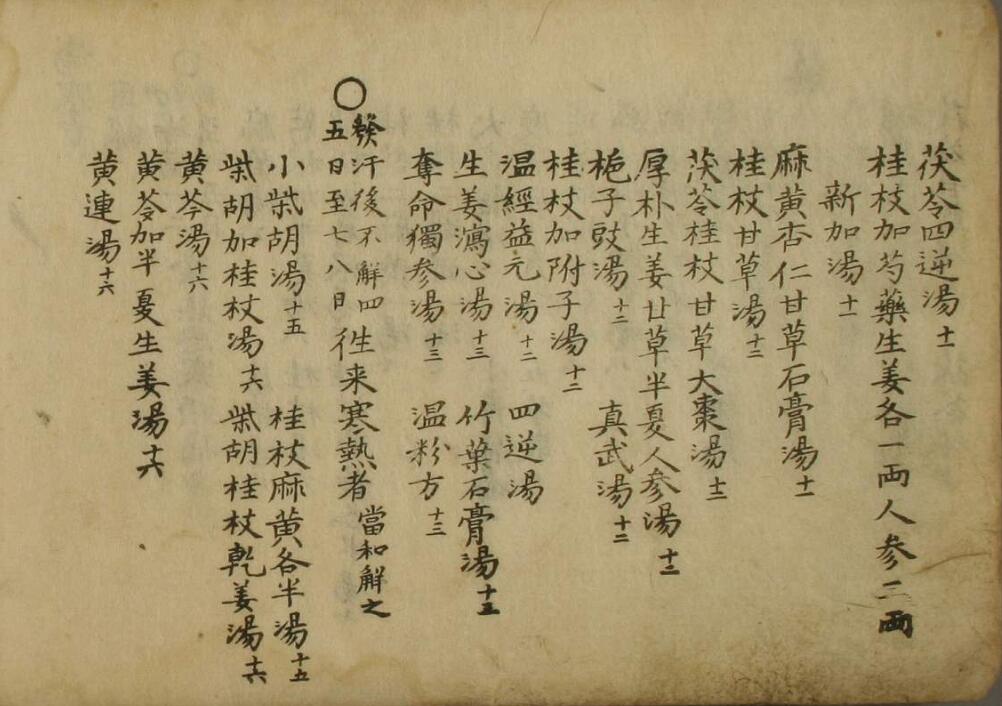 茯苓四逆湯 十一
桂枝加芍藥生姜各一両人参三両
新加湯 十一
麻黄杏仁甘草石膏湯 十一
桂枝甘草湯 十二
茯苓桂枝甘草大棗湯 十二
厚朴生姜甘草半夏人参湯 十二
梔子豉湯 十二 真武湯 十二
桂枝加附子湯 十二
温經益元湯 十二 四逆湯
生姜瀉心湯 十三 竹葉石膏湯 十三
奪命獨参湯 十三 温粉方 十三
○
發汗後不解四
五日至七八日往来寒熱者當和解之
小柴胡湯 十五 桂枝麻黄各半湯 十五
柴胡加桂枝湯 十六 柴胡桂枝乾姜湯 十六
黄芩湯 十六
黄芩加半夏生姜湯 十六
黄連湯 十六